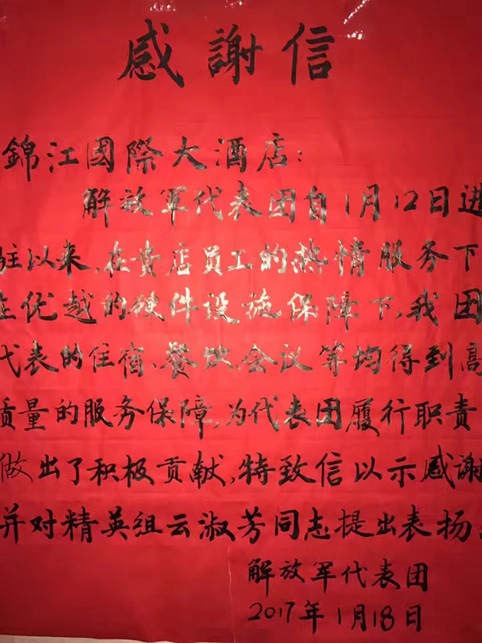 感謝信
錦江國際大酒店:
解放軍代表团自1月12日进
驻以来,在贵店员工的热情服务下
在优越的硬件设施保障下,我团
代表的住宿、餐饮、会议等均得到高
质量的服务保障,为代表团履行职责
做出了积极贡献,特致信以示感谢
并对精英组云淑芳同志提出表扬
解放军代表团
2017年1月18日